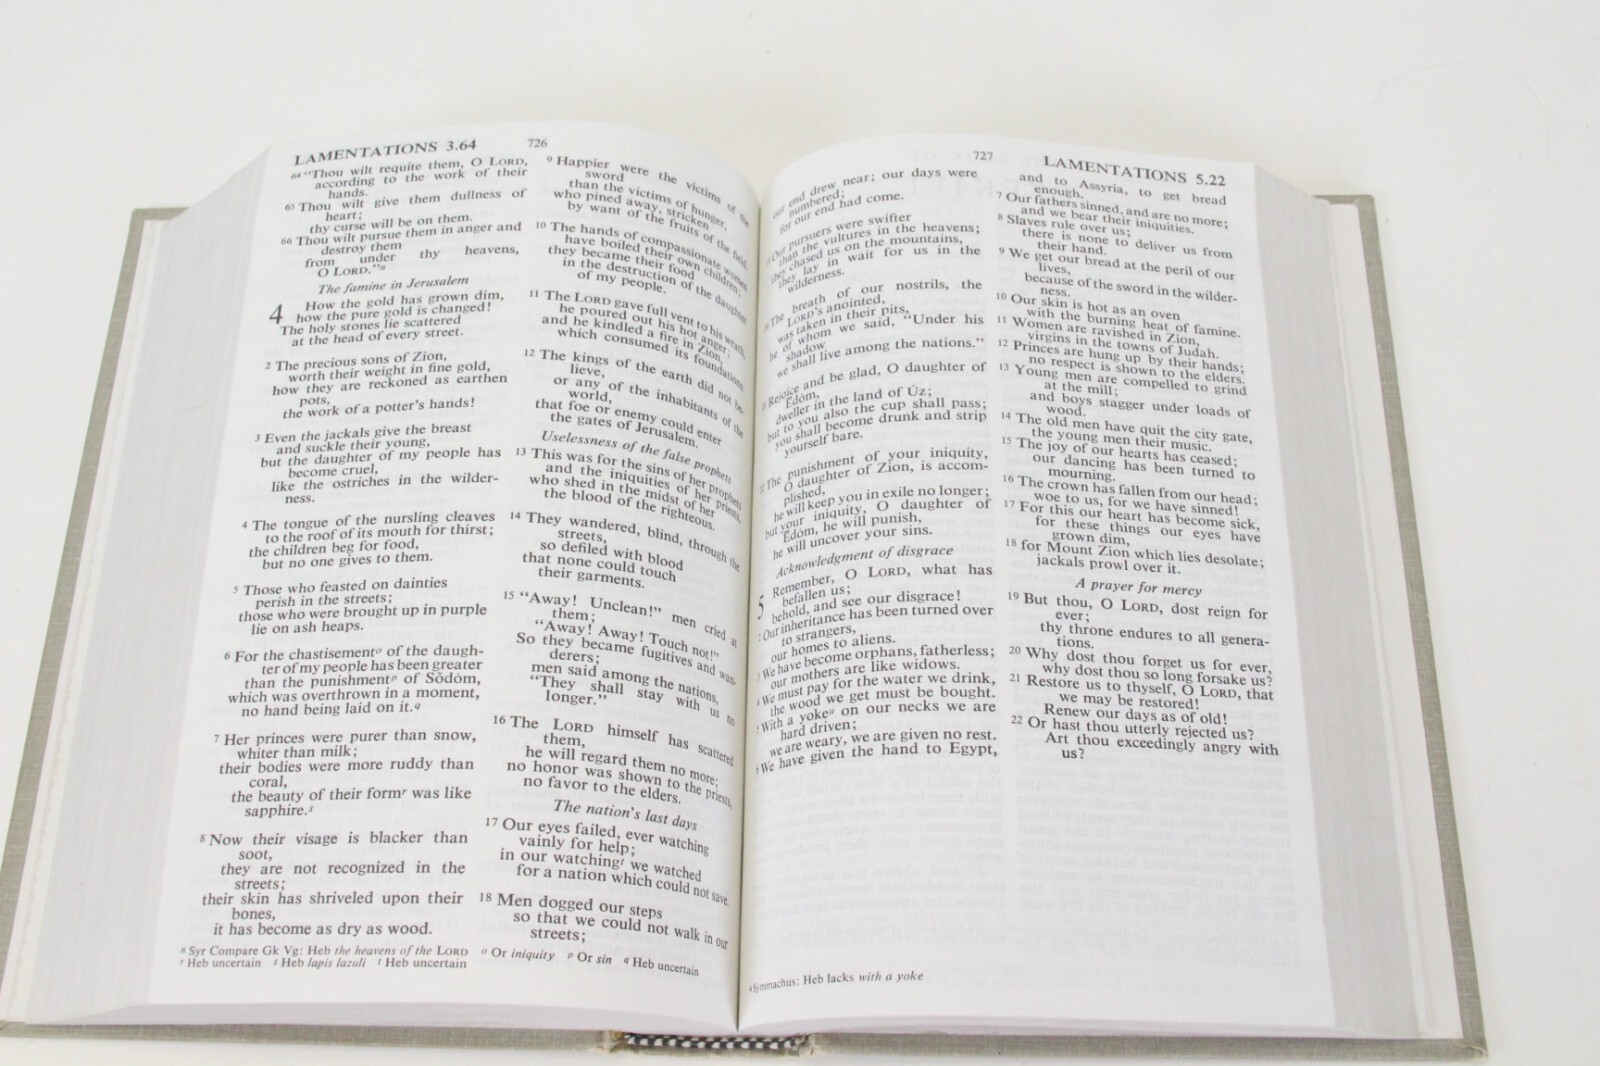 LAMENTATIONS 3.64
726
64 "Thou wilt requite them, O LORD,
according to the work of their
hands.
65 Thou wilt give them dullness of
heart;
thy curse will be on them.
66 Thou wilt pursue them in anger and
destroy them
from under thy heavens,
O LORD."n
The famine in Jerusalem
4 How the gold has grown dim,
how the pure gold is changed!
The holy stones lie scattered
at the head of every street.
2 The precious sons of Zion,
worth their weight in fine gold,
how they are reckoned as earthen
pots,
the work of a potter's hands!
3 Even the jackals give the breast
and suckle their young,
but the daughter of my people has
become cruel,
like the ostriches in the wilder-
ness.
4 The tongue of the nursling cleaves
to the roof of its mouth for thirst;
the children beg for food,
but no one gives to them.
5 Those who feasted on dainties
perish in the streets;
those who were brought up in purple
lie on ash heaps.
6 For the chastisemento of the daugh-
ter of my people has been greater
than the punishmentp of Sŏdóm,
which was overthrown in a moment,
no hand being laid on it.q
7 Her princes were purer than snow,
whiter than milk;
their bodies were more ruddy than
coral,
the beauty of their formr was like
sapphire.s
8 Now their visage is blacker than
soot,
they are not recognized in the
streets;
their skin has shriveled upon their
bones,
it has become as dry as wood.
9 Happier were the victims of the
sword
than the victims of hunger,
who pined away, stricken
by want of the fruits of the field.
10 The hands of compassionate women
have boiled their own children;
they became their food
in the destruction of the daughter
of my people.
11 The LORD gave full vent to his wrath,
he poured out his hot anger;
and he kindled a fire in Zion,
which consumed its foundations.
12 The kings of the earth did not be-
lieve,
or any of the inhabitants of the
world,
that foe or enemy could enter
the gates of Jerusalem.
Uselessness of the false prophets
13 This was for the sins of her prophets
and the iniquities of her priests,
who shed in the midst of her
the blood of the righteous.
14 They wandered, blind, through the
streets,
so defiled with blood
that none could touch
their garments.
15 "Away! Unclean!" men cried at
them;
"Away! Away! Touch not!"
So they became fugitives and wan-
derers;
men said among the nations,
"They shall stay with us no
longer."
16 The LORD himself has scattered
them,
he will regard them no more;
no honor was shown to the priests,
no favor to the elders.
The nation's last days
17 Our eyes failed, ever watching
vainly for help;
in our watchingt we watched
for a nation which could not save.
18 Men dogged our steps
so that we could not walk in our
streets;
n Syr Compare Gk Vg: Heb the heavens of the LORD o Or iniquity p Or sin q Heb uncertain
r Heb uncertain s Heb lapis lazuli t Heb uncertain
727
LAMENTATIONS 5.22
our end drew near; our days were
numbered;
for our end had come.
19 Our pursuers were swifter
than the vultures in the heavens;
they chased us on the mountains,
they lay in wait for us in the
wilderness.
20 The breath of our nostrils, the
LORD's anointed,
was taken in their pits,
he of whom we said, "Under his
shadow
we shall live among the nations."
21 Rejoice and be glad, O daughter of
Ēdóm,
dweller in the land of Úz;
but to you also the cup shall pass;
you shall become drunk and strip
yourself bare.
22 The punishment of your iniquity,
O daughter of Zion, is accom-
plished,
he will keep you in exile no longer;
but your iniquity, O daughter of
Ēdóm, he will punish,
he will uncover your sins.
Acknowledgment of disgrace
5 Remember, O LORD, what has
befallen us;
behold, and see our disgrace!
2 Our inheritance has been turned over
to strangers,
our homes to aliens.
3 We have become orphans, fatherless;
our mothers are like widows.
4 We must pay for the water we drink,
the wood we get must be bought.
5 With a yokeu on our necks we are
hard driven;
we are weary, we are given no rest.
6 We have given the hand to Egypt,
and to Assyria, to get bread
enough.
7 Our fathers sinned, and are no more;
and we bear their iniquities.
8 Slaves rule over us;
there is none to deliver us from
their hand.
9 We get our bread at the peril of our
lives,
because of the sword in the wilder-
ness.
10 Our skin is hot as an oven
with the burning heat of famine.
11 Women are ravished in Zion,
virgins in the towns of Judah.
12 Princes are hung up by their hands;
no respect is shown to the elders.
13 Young men are compelled to grind
at the mill;
and boys stagger under loads of
wood.
14 The old men have quit the city gate,
the young men their music.
15 The joy of our hearts has ceased;
our dancing has been turned to
mourning.
16 The crown has fallen from our head;
woe to us, for we have sinned!
17 For this our heart has become sick,
for these things our eyes have
grown dim,
18 for Mount Zion which lies desolate;
jackals prowl over it.
A prayer for mercy
19 But thou, O LORD, dost reign for
ever;
thy throne endures to all genera-
tions.
20 Why dost thou forget us for ever,
why dost thou so long forsake us?
21 Restore us to thyself, O LORD, that
we may be restored!
Renew our days as of old!
22 Or hast thou utterly rejected us?
Art thou exceedingly angry with
us?
u Symmachus: Heb lacks with a yoke